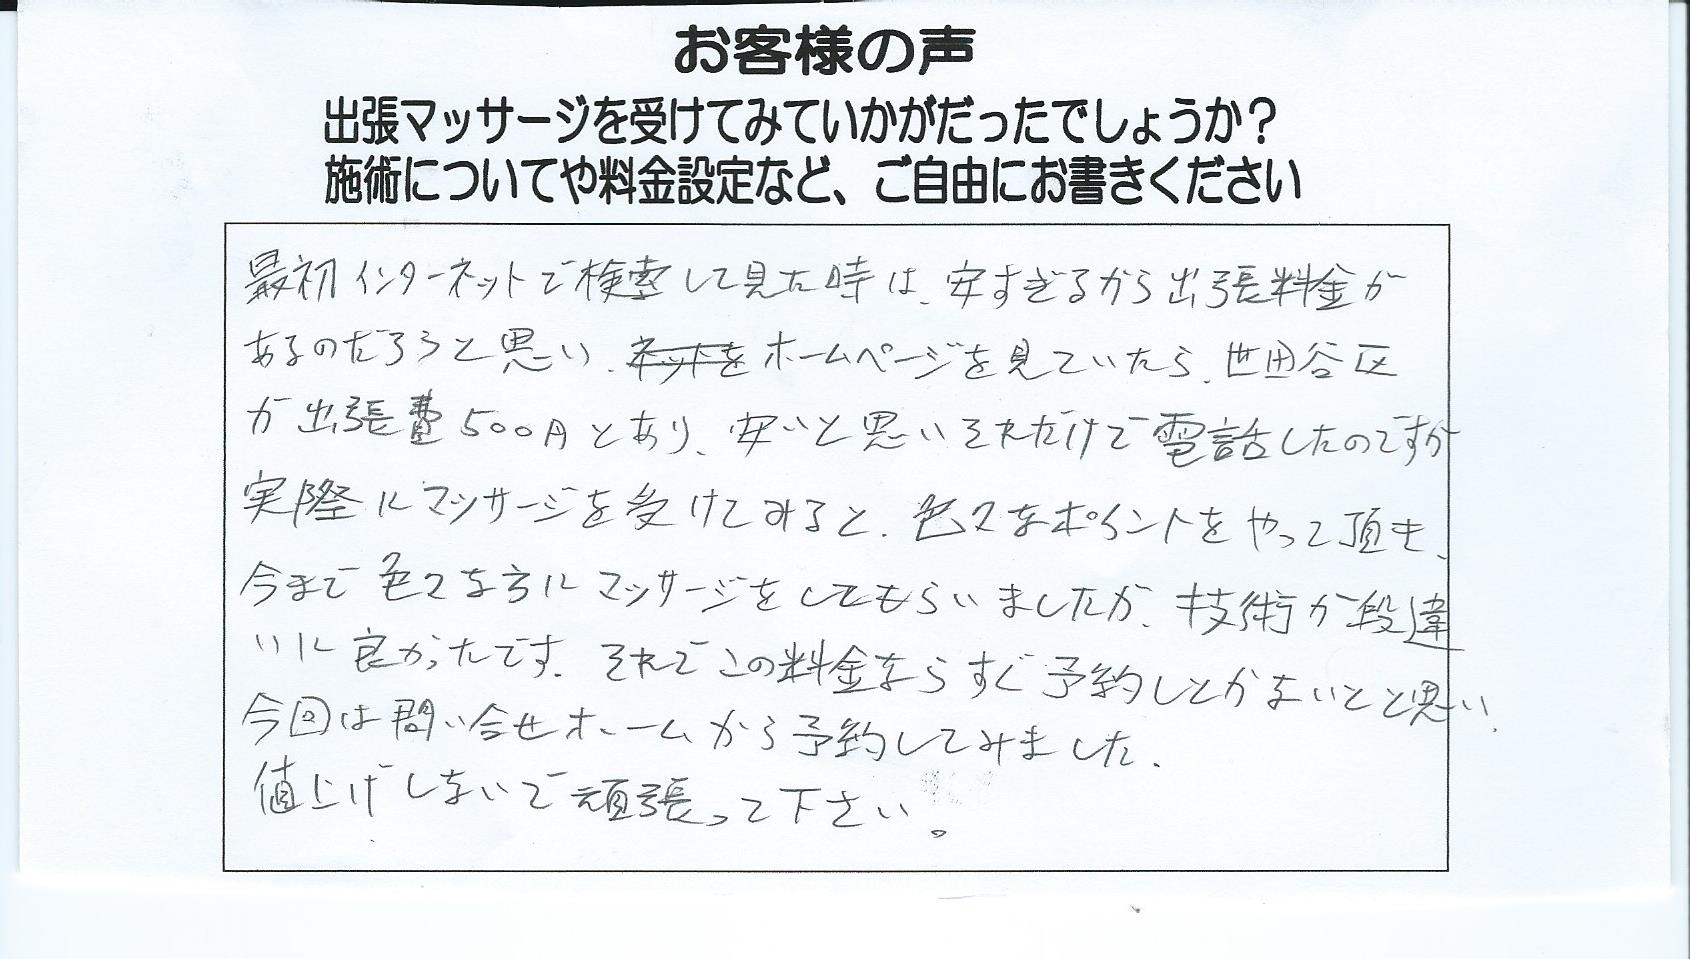 お客様の声
出張マッサージを受けてみていかがだったでしょうか？
施術についてや料金設定など、ご自由にお書きください
最初インターネットで検索して見た時は、安すぎるから出張料金が
あるのだろうと思い、ネットをホームページを見ていたら、世田谷区
が出張費500円とあり、安いと思いそれだけで電話したのですが
実際にマッサージを受けてみると、色々なポイントをやって頂き、
今まで色々な方にマッサージをしてもらいましたが、技術が段違
いに良かったです。それでこの料金ならすぐ予約しとかないとと思い、
今回は問い合せホームから予約してみました。
値上げしないで頑張って下さい。